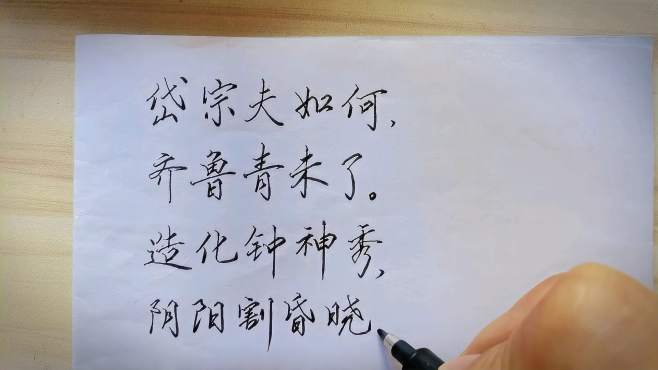 岱宗夫如何，
齐鲁青未了。
造化钟神秀，
阴阳割昏晓